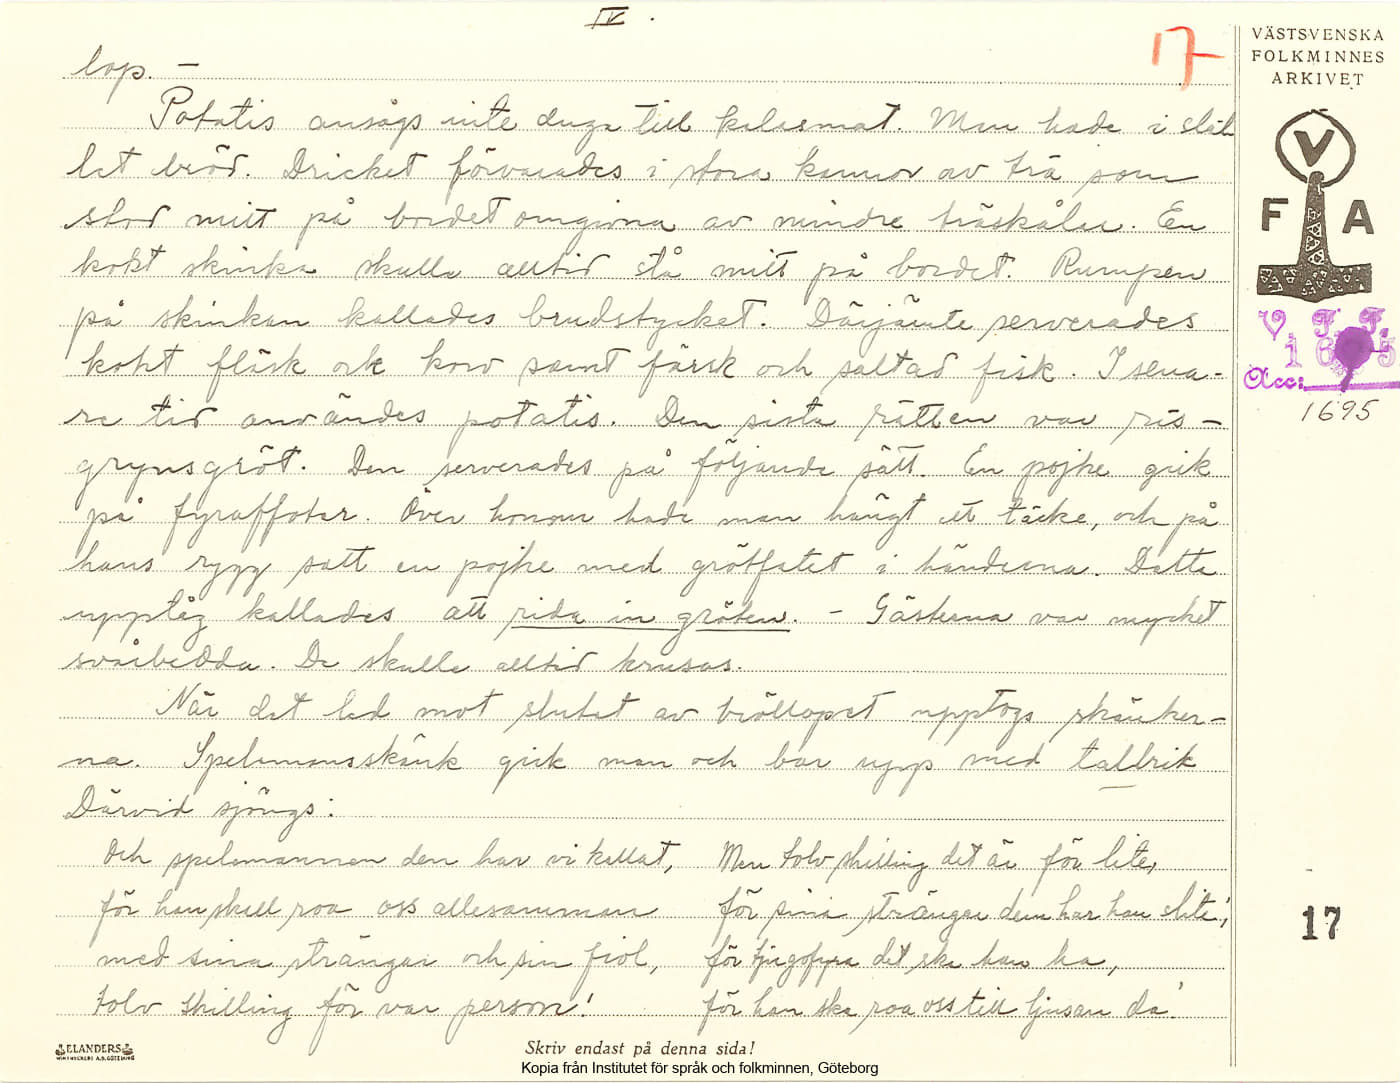 IV.
17
lop. –
Potatis ansågs inte duga till kalasmat. Man hade i stäl
let bröd. Dricket förvarades i stora kannor av trä som
stod mitt på bordet omgivna av mindre träskålar. En
kokt skinka skulle alltid stå mitt på bordet. Rumpen
på skinkan kallades brudstycket. Därjämte serverades
kokt fläsk ock korv samt färsk och saltad fisk. I sena-
re tid användes potatis. Den sista rätten var ris-
grynsgröt. Den serverades på följande sätt. En pojke gick
på fyraffotar. Över honom hade man hängt ett täcke, och på
hans rygg satt en pojke med grötfatet i händerna. Detta
upptåg kallades att rida in gröten. – Gästerna var mycket
svårbedda. De skulle alltid krusas.
När det led mot slutet av bröllopet upptogs skänker-
na. Spelemansskänk gick man och bar upp med tallrik
Därvid sjöngs:
Och spelemannen den har vi kallat,
för han skall roa oss allesamman
med sina strängar och sin fiol,
tolv skilling för var person!
Men tolv skilling det är för lite,
för sina strängar dem har han slite',
för tjugofyra det ska han ha,
för han ska roa oss till ljusan da'.
VÄSTSVENSKA
FOLKMINNES
ARKIVET
V
F A
V. F. F.
Acc:
1695
17
ELANDERS
Skriv endast på denna sida!
Kopia från Institutet för språk och folkminnen, Göteborg